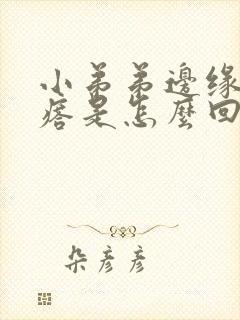 小弟弟邊缘
痞是怎麼回
朵彦彦